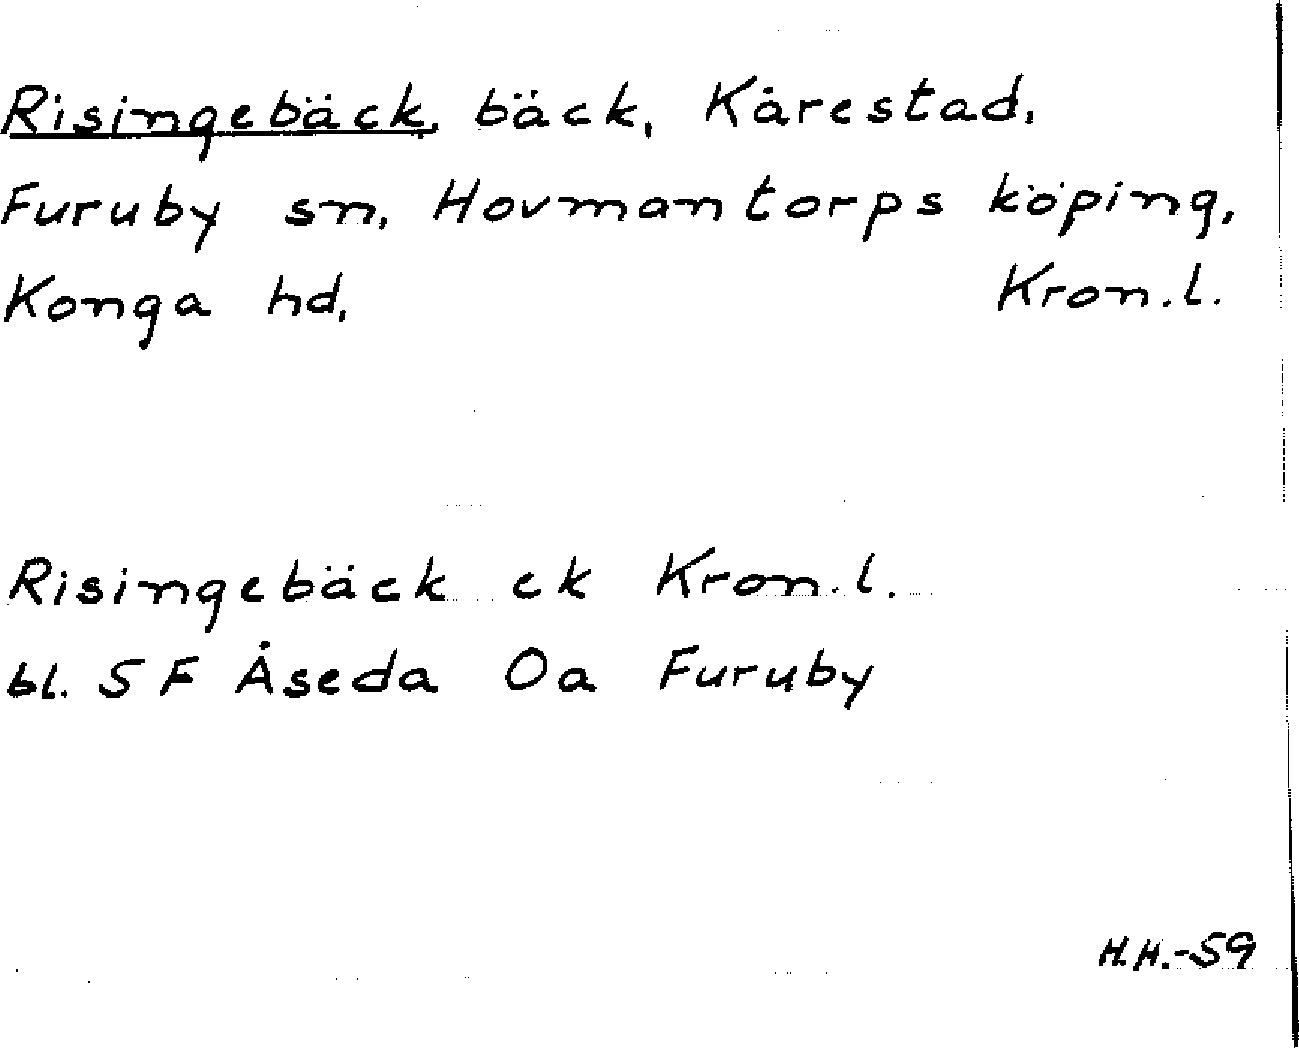 Risingebäck, bäck, Kårestad,
Furuby sn, Hovmantorps köping,
Konga hd, Kron.l.
Risingebäck ek Kron.l.
bl. 5 F Åseda Oa Furuby
H.H.-59